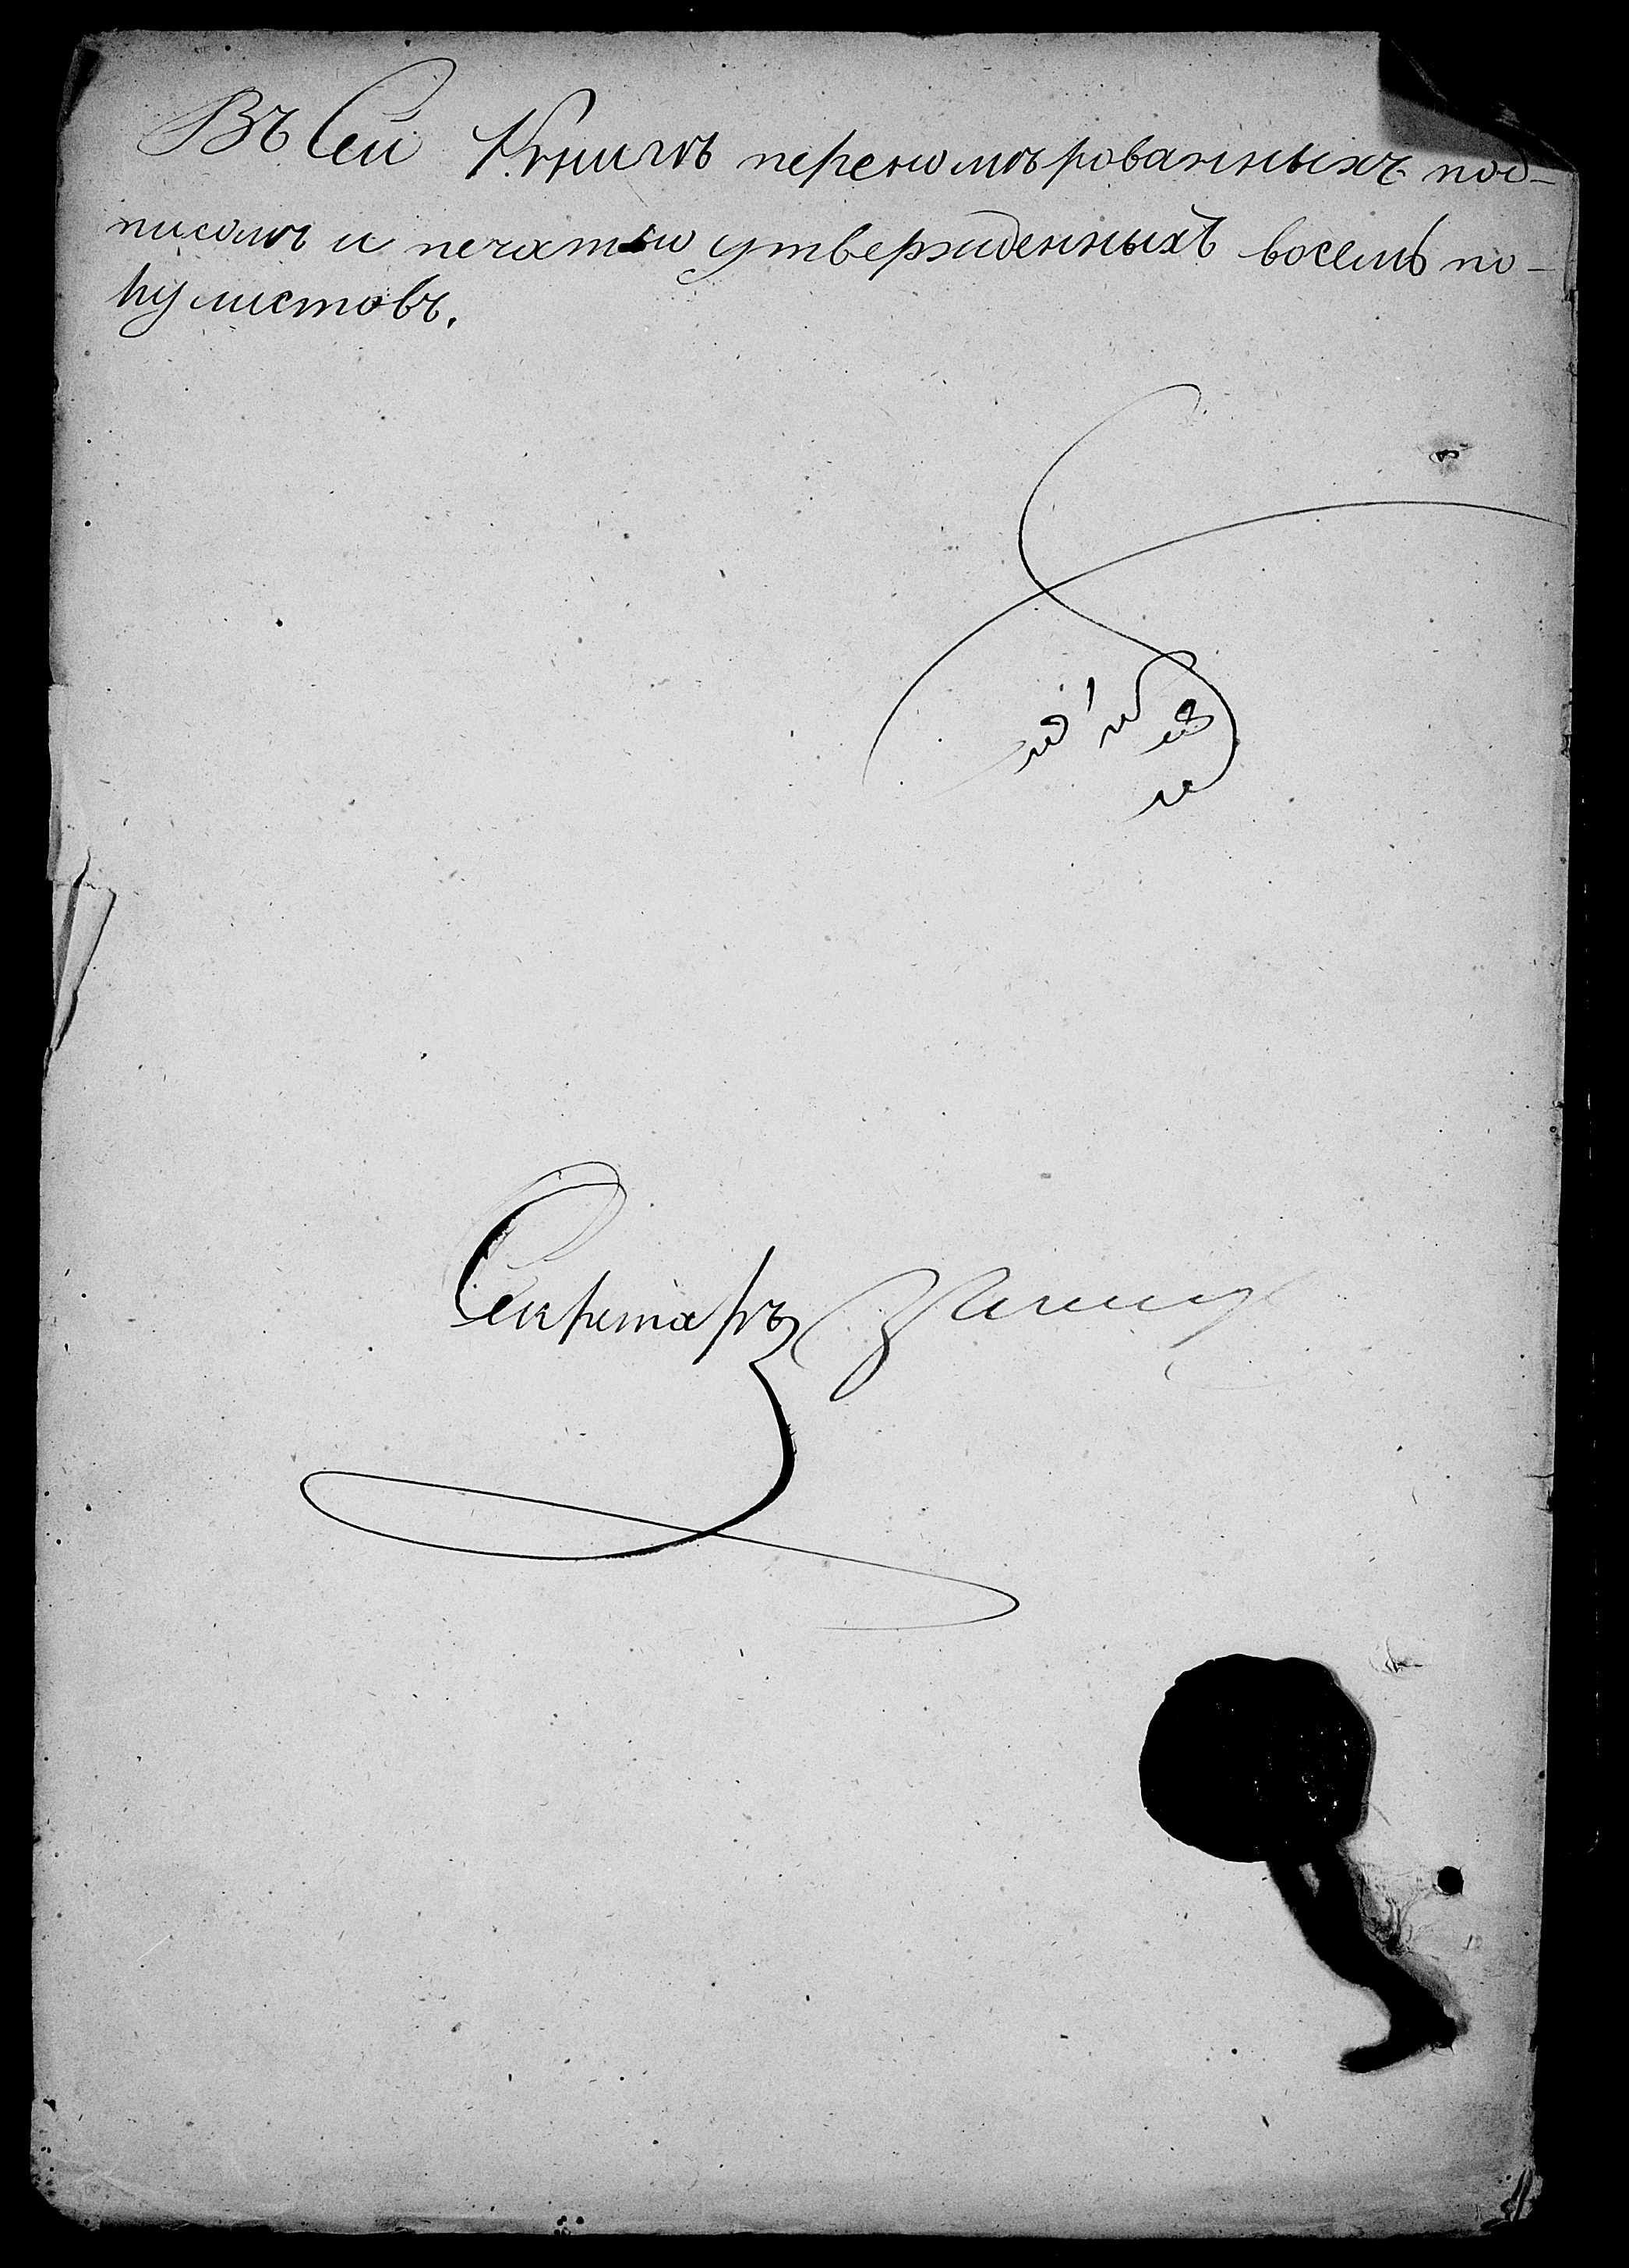 Въ Сей Книгѣ переномѣрованныхъ под-
писомъ и печатью утвержденныхъ восемь по-
лулистовъ.
Секретарь